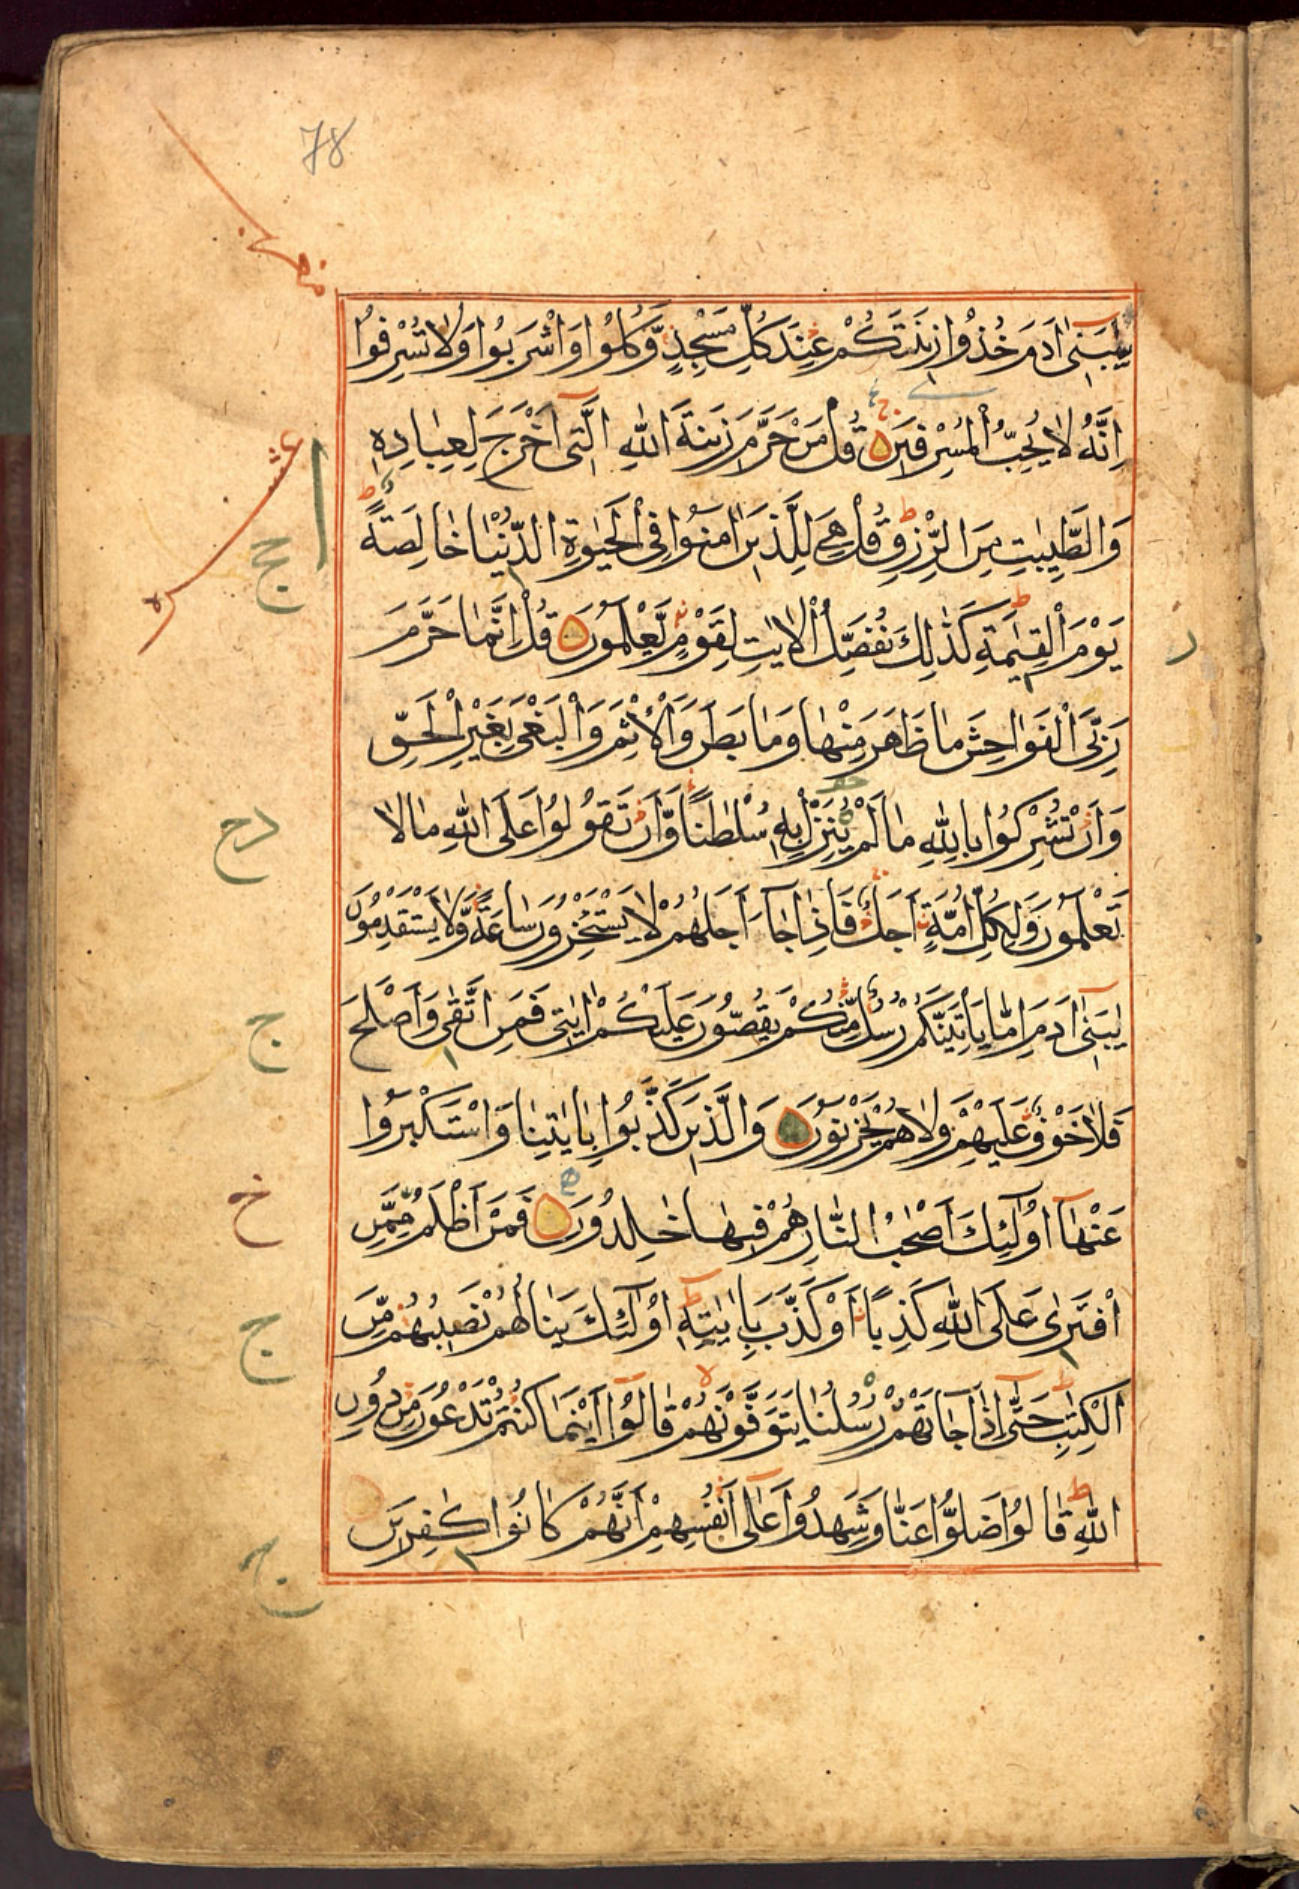 78
يٰبَنِىٓ اٰدَمَ خُذُوْا زِيْنَتَكُمْ عِنْدَ كُلِّ مَسْجِدٍ وَّكُلُوْا وَاشْرَبُوْا وَلَا تُسْرِفُوْا
اِنَّهٗ لَا يُحِبُّ الْمُسْرِفِيْنَ قُلْ مَنْ حَرَّمَ زِيْنَةَ اللّٰهِ الَّتِىٓ اَخْرَجَ لِعِبَادِهٖ
وَالطَّيِّبٰتِ مِنَ الرِّزْقِ ط قُلْ هِىَ لِلَّذِيْنَ اٰمَنُوْا فِى الْحَيٰوةِ الدُّنْيَا خَالِصَةً
يَوْمَ الْقِيٰمَةِ ط كَذٰلِكَ نُفَصِّلُ الْاٰيٰتِ لِقَوْمٍ يَّعْلَمُوْنَ قُلْ اِنَّمَا حَرَّمَ
رَبِّىَ الْفَوَاحِشَ مَا ظَهَرَ مِنْهَا وَمَا بَطَنَ وَالْاِثْمَ وَالْبَغْىَ بِغَيْرِ الْحَقِّ
وَاَنْ تُشْرِكُوْا بِاللّٰهِ مَا لَمْ يُنَزِّلْ بِهٖ سُلْطٰنًا وَّاَنْ تَقُوْلُوْا عَلَى اللّٰهِ مَا لَا
تَعْلَمُوْنَ وَلِكُلِّ اُمَّةٍ اَجَلٌ فَاِذَا جَآءَ اَجَلُهُمْ لَا يَسْتَـْٔخِرُوْنَ سَاعَةً وَّلَا يَسْتَقْدِمُوْنَ
يٰبَنِىٓ اٰدَمَ اِمَّا يَاْتِيَنَّكُمْ رُسُلٌ مِّنْكُمْ يَقُصُّوْنَ عَلَيْكُمْ اٰيٰتِىْ فَمَنِ اتَّقٰى وَاَصْلَحَ
فَلَا خَوْفٌ عَلَيْهِمْ وَلَا هُمْ يَحْزَنُوْنَ وَالَّذِيْنَ كَذَّبُوْا بِاٰيٰتِنَا وَاسْتَكْبَرُوْا
عَنْهَآ اُولٰٓئِكَ اَصْحٰبُ النَّارِ هُمْ فِيْهَا خٰلِدُوْنَ فَمَنْ اَظْلَمُ مِمَّنِ
افْتَرٰى عَلَى اللّٰهِ كَذِبًا اَوْ كَذَّبَ بِاٰيٰتِهٖ ط اُولٰٓئِكَ يَنَالُهُمْ نَصِيْبُهُمْ مِّنَ
الْكِتٰبِ ط حَتّٰىٓ اِذَا جَآءَتْهُمْ رُسُلُنَا يَتَوَفَّوْنَهُمْ قَالُوْٓا اَيْنَمَا كُنْتُمْ تَدْعُوْنَ مِنْ دُوْنِ
اللّٰهِ ط قَالُوْا ضَلُّوْا عَنَّا وَشَهِدُوْا عَلٰىٓ اَنْفُسِهِمْ اَنَّهُمْ كَانُوْا كٰفِرِيْنَ